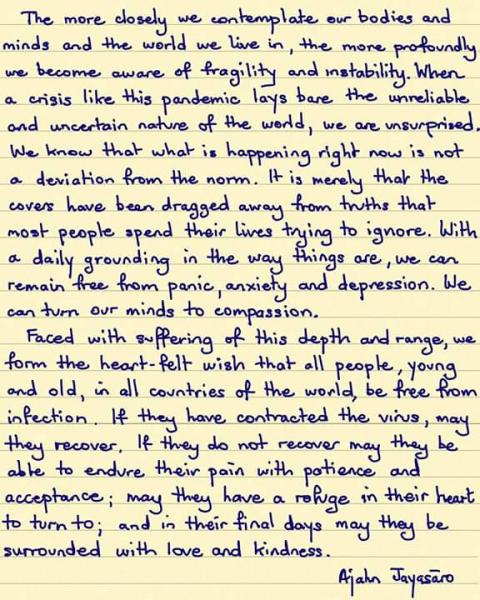 The more closely we contemplate our bodies and
minds and the world we live in, the more profoundly
we become aware of fragility and instability. When
a crisis like this pandemic lays bare the unreliable
and uncertain nature of the world, we are unsurprised.
We know that what is happening right now is not
a deviation from the norm. It is merely that the
covers have been dragged away from truths that
most people spend their lives trying to ignore. With
a daily grounding in the way things are, we can
remain free from panic, anxiety and depression. We
can turn our minds to compassion.
Faced with suffering of this depth and range, we
form the heart-felt wish that all people, young
and old, in all countries of the world, be free from
infection. If they have contracted the virus, may
they recover. If they do not recover may they be
able to endure their pain with patience and
acceptance; may they have a refuge in their heart
to turn to; and in their final days may they be
surrounded with love and kindness.
Ajahn Jayasāro